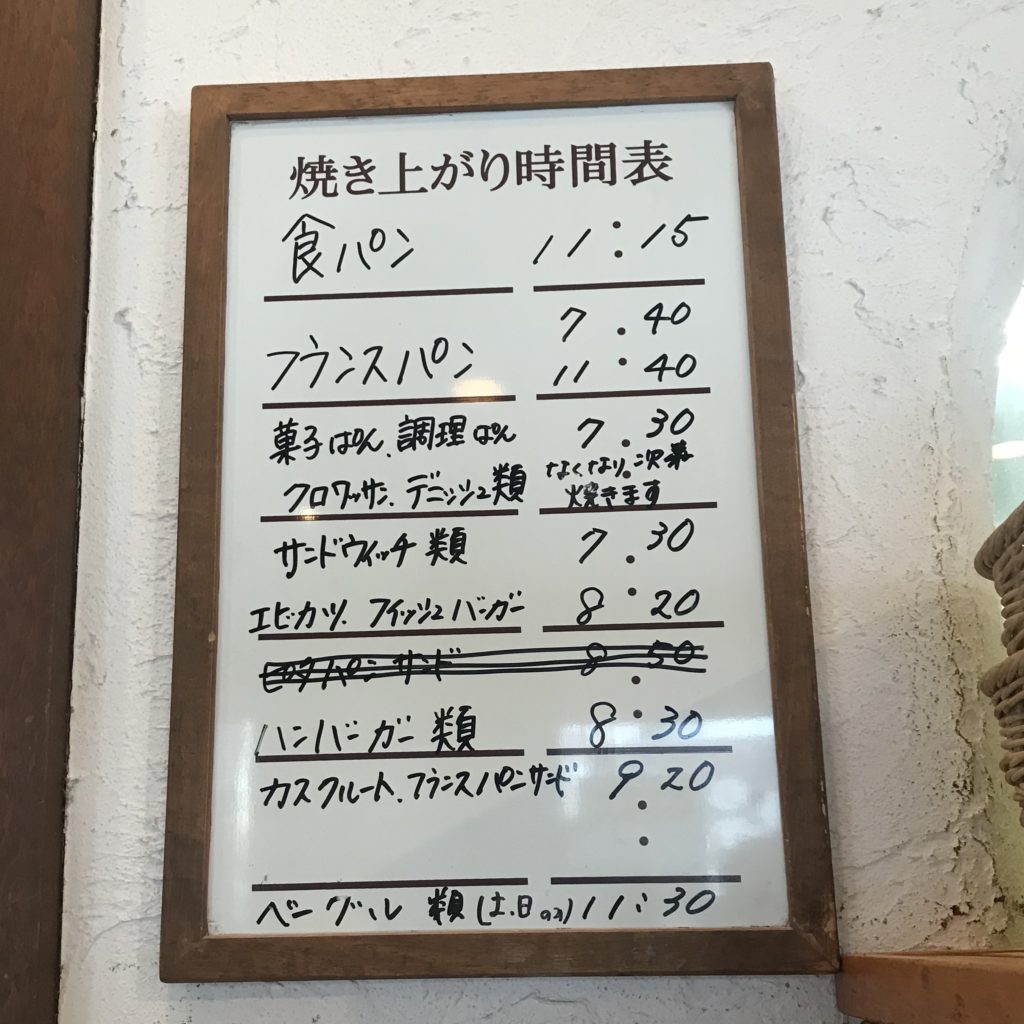 焼き上がり時間表
食パン 11:15
7.40
フランスパン 11:40
菓子ぱん、調理ぱん 7.30
クロワッサン、デニッシュ類 なくなり次第
焼きます
サンドウィッチ類 7.30
エビ・カツ、フィッシュバーガー 8:20
ピタパンサンド 8.50
ハンバーガー類 8:30
カスクルート、フランスパンサンド 9.20
ベーグル類(土、日のみ) 11:30